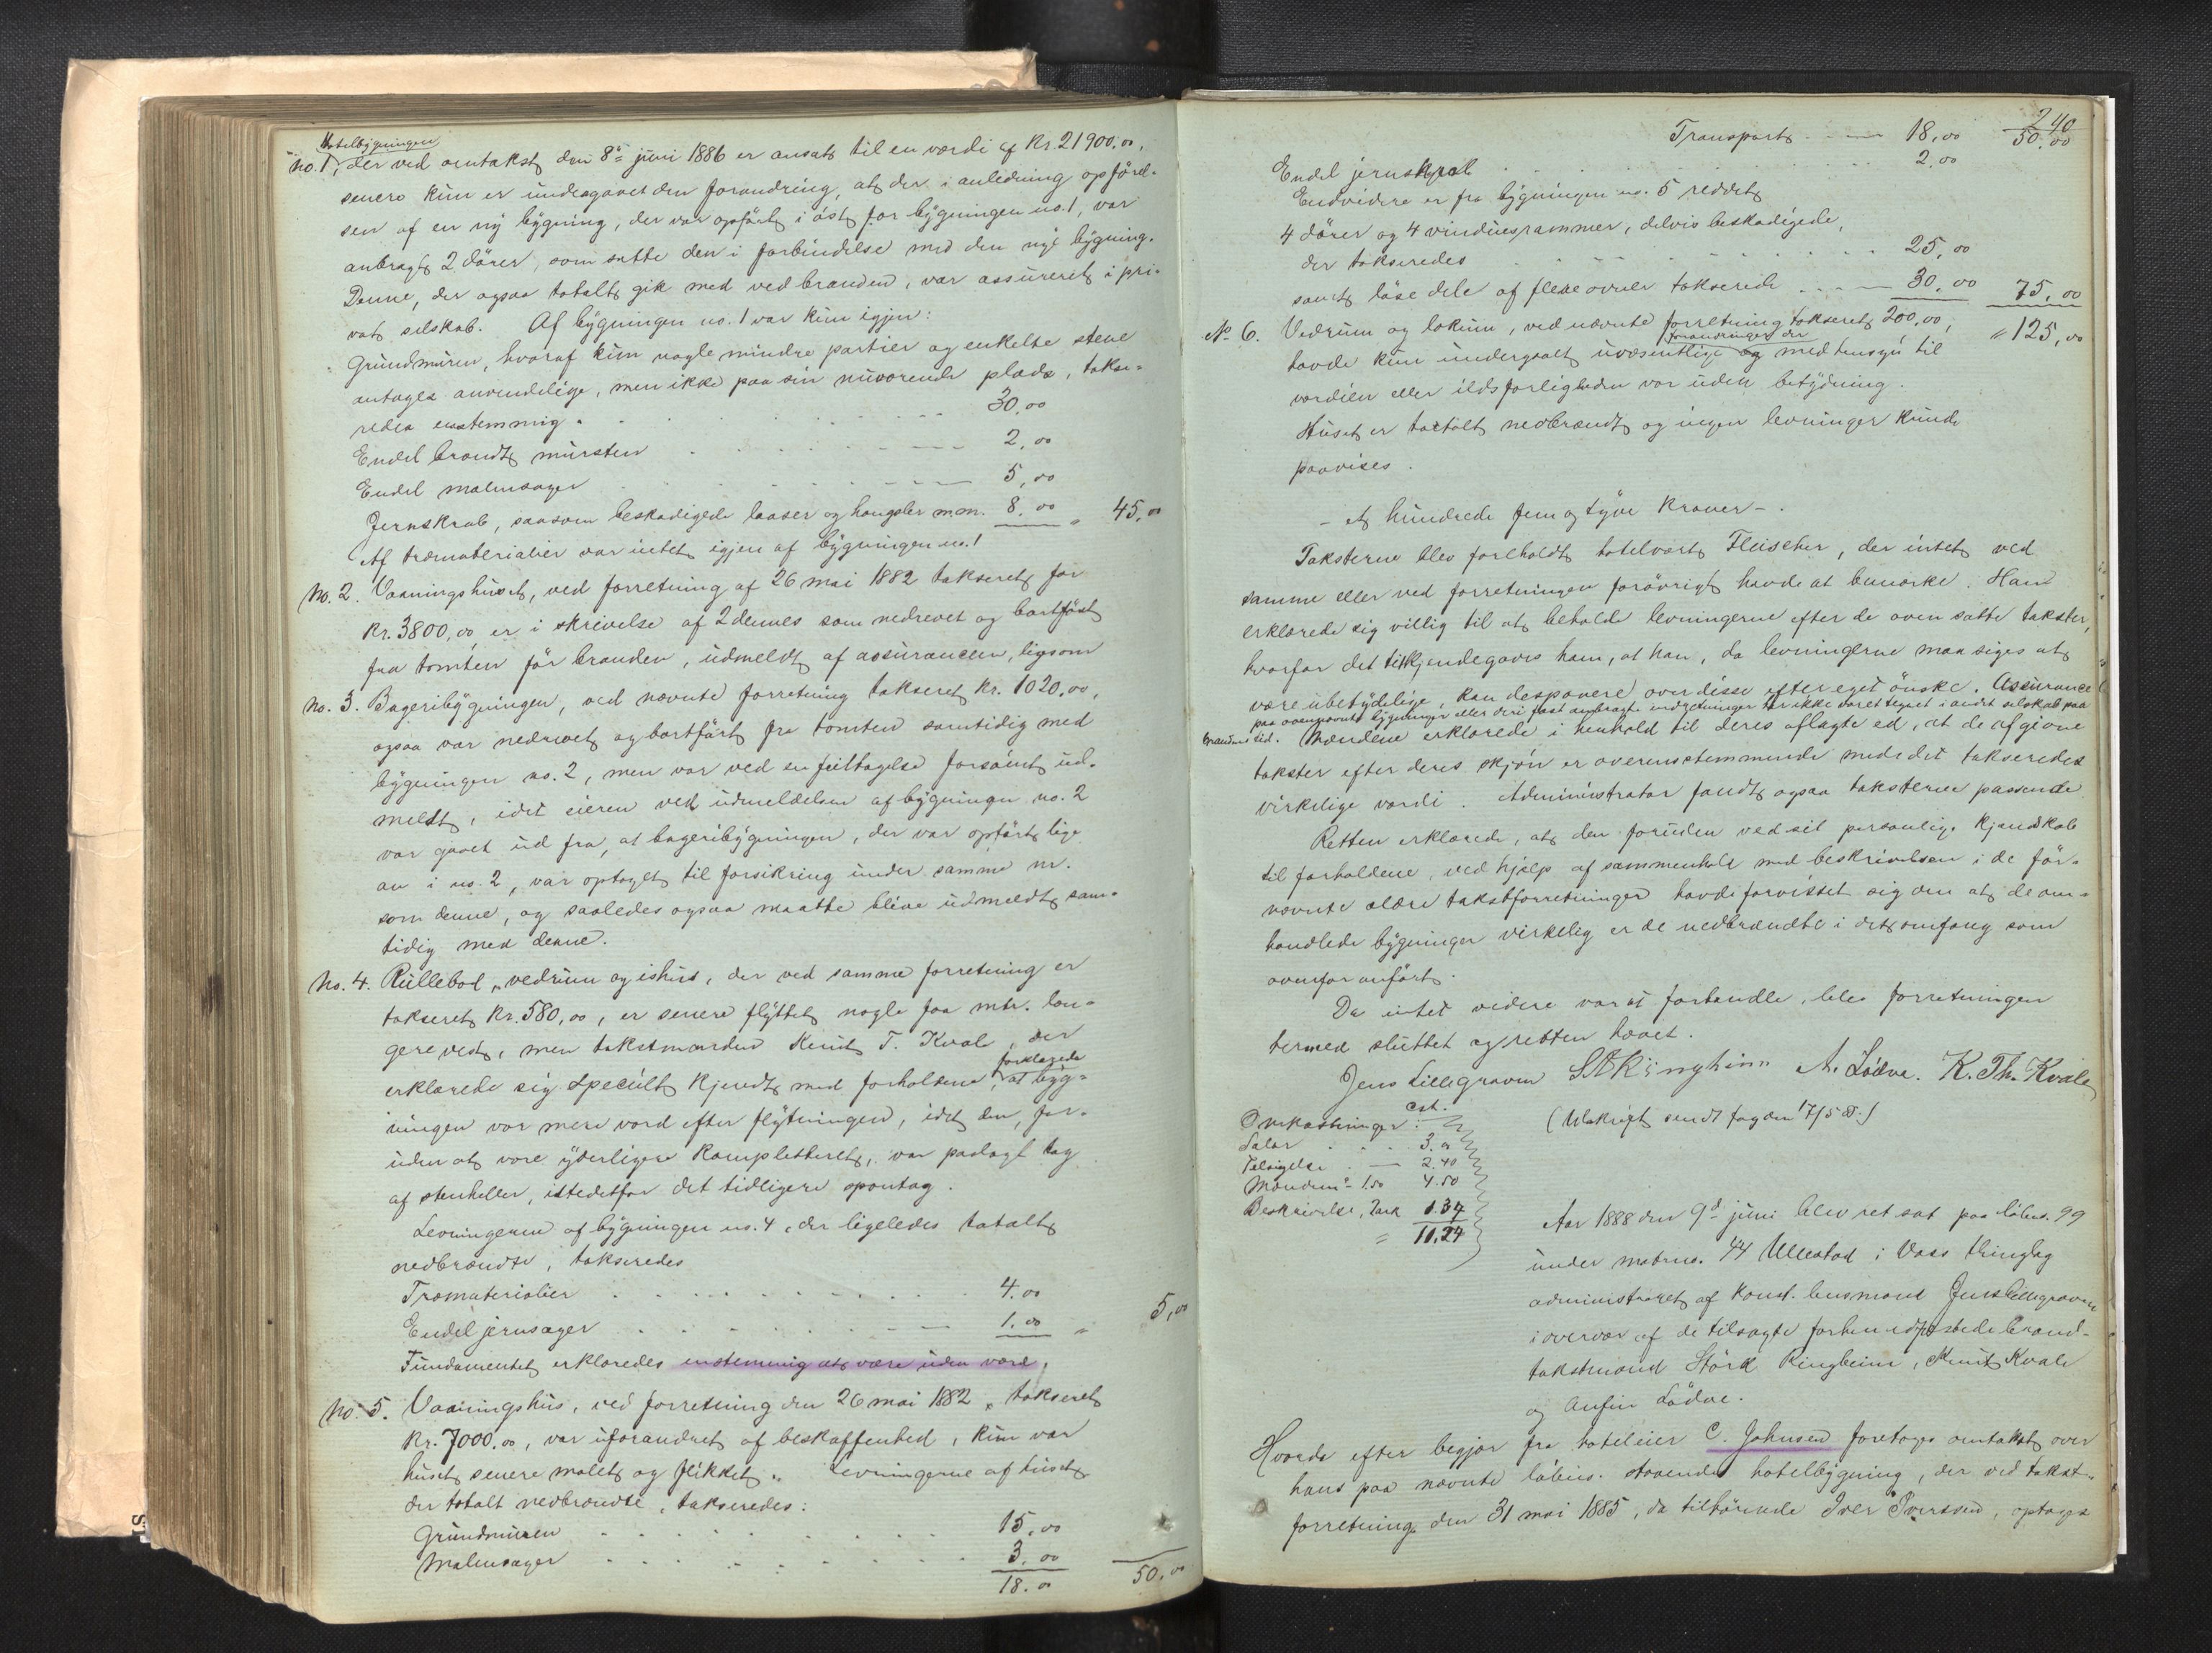 Hotelbygningen
No. 1, der ved omtakst den 8de juni 1886 er ansat til en værdi af Kr. 21900,00,
senere kun er undergaaet den forandring, at der i anledning opførel-
sen af en ny bygning, der var opført i øst for bygningen no. 1, var
anbragt 2 dører, som satte den i forbindelse med den nye bygning.
Denne, der ogsaa totalt gik med ved branden, var assureret i pri-
vat selskab. Af bygningen no. 1 var kun igjen:
Grundmuren, hvoraf kun nogle mindre partier og enkelte stene
antages anvendelige, men ikke paa sin nuværende plads, takse-
redes enstemmig . . . 30,00
Endel brændt mursten . . . 2,00
Endel malmsager . . . 5,00
Jernskrab, saasom beskadigede laaser og hængsler m.m. 8,00 " 45,00
Af træmaterialier var intet igjen af bygningen no. 1
No. 2. Vaaningshuset, ved forretning af 26 mai 1882 takseret for
Kr. 3800,00 er i skrivelse af 2 dennes som nedrevet og bortført
fra tomten før branden, udmeldt af assurancen, ligsom
No. 3. Bageribygningen, ved nævnte forretning takseret Kr. 1020,00,
ogsaa var nedrevet og bortført fra tomten samtidig med
bygningen no. 2, men var ved en feiltagelse forsømt ud-
meldt, idet eieren ved udmeldelsen af bygningen no. 2
var gaaet ud fra, at bageribygningen, der var opført lige
an i no. 2, var optaget til forsikring under samme nr.
som denne, og saaledes ogsaa maatte blive udmeldt sam-
tidig med denne.
No. 4. Rullebod, vedrum og ishus, der ved samme forretning er
takseret Kr. 580,00, er senere flyttet nogle faa mtr. læn-
gere vest, men takstmanden Knut T. Kvale, der
erklærede sig specielt kjendt med forholdene, forklarede at byg-
ningen var mere værd efter flytningen, idet den, for-
uden at være yderligere kompletteret, var paalagt tag
af stenheller, istedetfor det tidligere spontag.
Levningerne af bygningen no. 4, der ligeledes totalt
nedbrændte, takseredes
Træmaterialier . . . 4,00
Endel jernsager . . . 1,00 " 5,00
Fundamentet erklæredes enstemmig at være uden værd.
No. 5. Vaaningshus, ved forretning den 26 mai 1882, takseret
Kr. 7000,00, var uforandret af beskaffenhed, kun var
huset senere malet og flikket. Levningerne af huset,
der totalt nedbrændte, takseredes:
Grundmuren . . . 15,00
Malmsager . . . 3,00
18,00 50,00
240
Transport . . . 18,00 50,00
Endel jernskrab . . . 2,00
Endvidere er fra bygningen no. 5 reddet
4 dører og 4 vinduesrammer, delvis beskadigede,
der takseredes . . . 25,00
samt løse dele af flere ovner takserede . . . 30,00 75,00
No 6. Vedrum og lokum, ved nævnte forretning takseret 200,00, " 125,00
havde kun undergaaet uvæsentlige forandringer der med hensyn til
værdien eller ildsfarligheden var uden betydning.
Huset er totalt nedbrændt og ingen levninger kunde
paavises.
- et hundrede fem og tyve kroner -.
Taksterne blev foreholdt hotelvært Fleischer, der intet ved
samme eller ved forretningen forøvrigt havde at bemærke. Han
erklærede sig villig til at beholde levningerne efter de oven satte takster,
hvorfor det tilkjendegaves ham, at han, da levningerne maa siges at
være ubetydelige, kan desponere over disse efter eget ønske. Assurance
paa ovennævnte bygninger eller deri fast anbragte indretninger har ikke været tegnet i andet selskab paa
brandens tid. Mændene erklærede i henhold til deres aflagte ed, at de afgivne
takster efter deres skjøn er overensstemmende med det takseredes
virkelige værdi. Administrator fandt ogsaa taksterne passende.
Retten erklærede, at den foruden ved sit personlige kjendskab
til forholdene, ved hjælp af sammenhold med beskrivelsen i de før-
nævnte ældre takstforretninger havde forvisset sig om at de om-
handlede bygninger virkelig er de nedbrændte i det omfang som
ovenfor anført.
Da intet videre var at forhandle, blev forretningen
hermed sluttet og retten hævet.
Jens Lillegraven A. Lødve. K. Th. Kvale
cst.
Omkostninger:
Salær . . . 3,00
Tilsigelse . — 2.40
Mændene - 1.50 4.50
Beskrivelse, 1.34
= 11.24
(Udskrift sendt fogden 17/5 88.)
Aar 1888 den 9de juni blev ret sat paa løbeno. 99
under matrno. 44 Ullestad i Voss thinglag
administreret af konst. lensmand Jens Lillegraven
i overvær af de tilsagte forhen edfæstede brand-
takstmænd Størk Ringheim, Knut Kvale
og Anfin Lødve.
Hvorda efter begjær fra hoteleier C. Johnsen foretoges omtakst over
hans paa nævnte løbeno. staaende hotelbygning, der ved takst-
forretning den 31 mai 1885, da tilhørende Iver Iversen, optoges